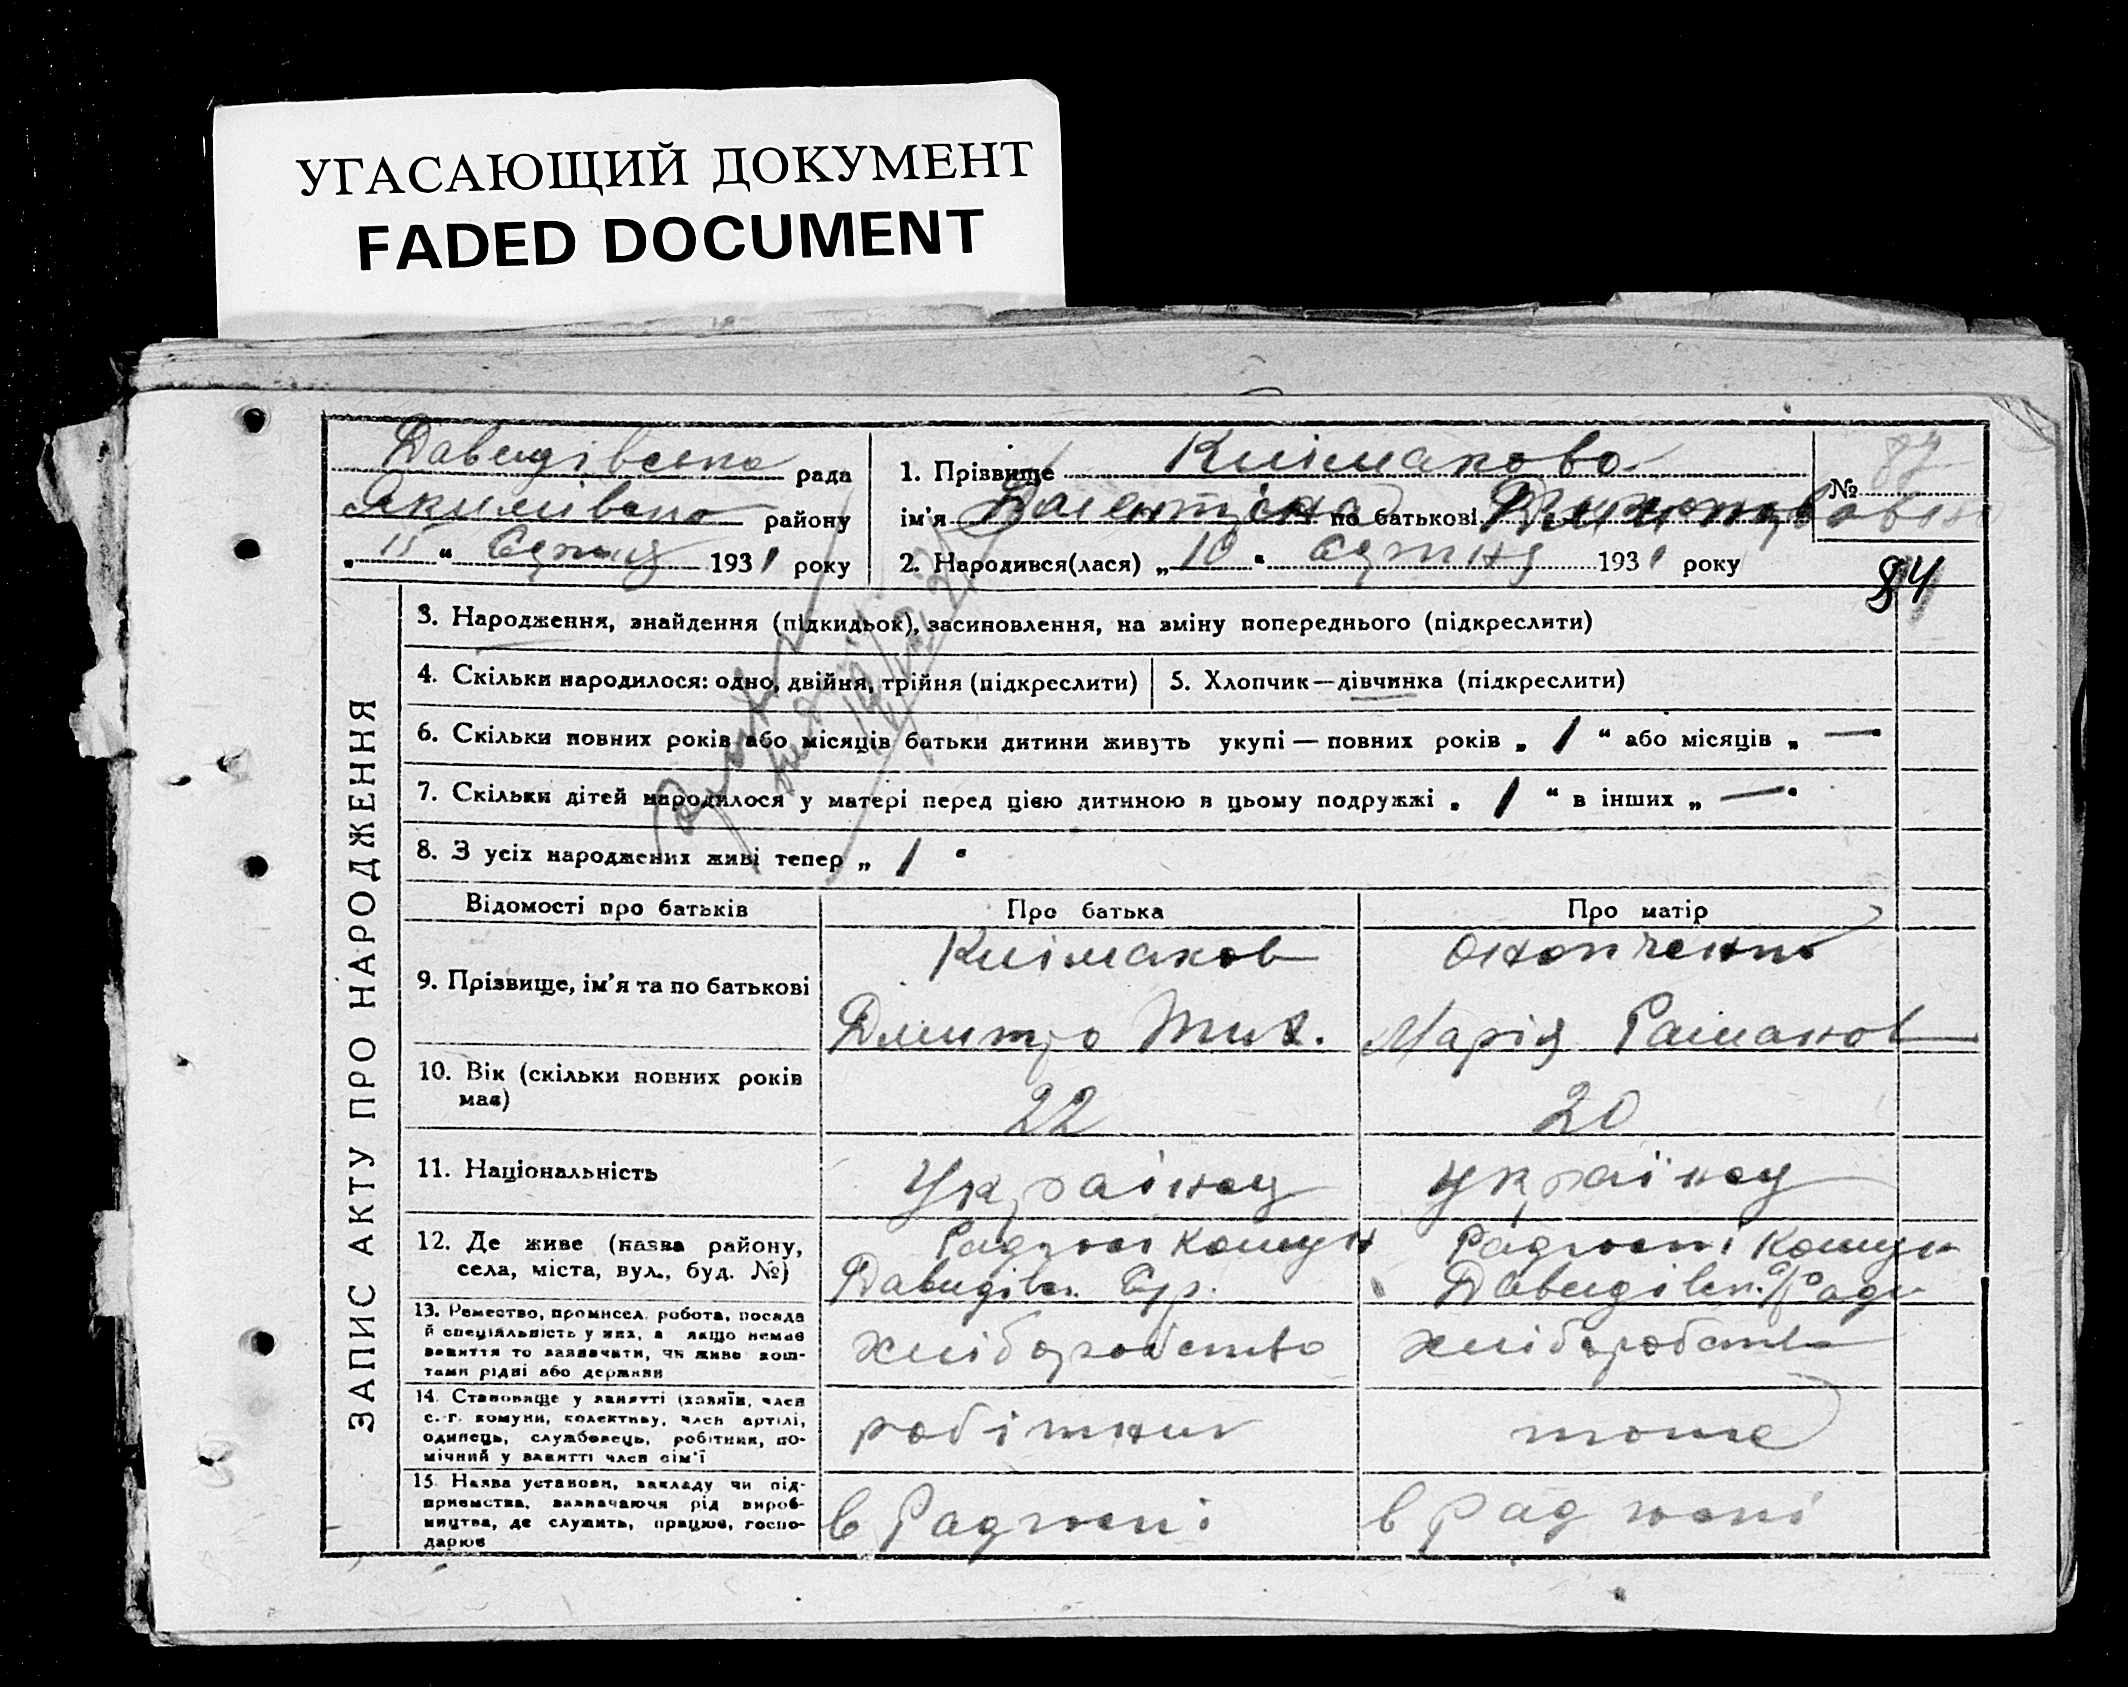 УГАСАЮЩИЙ ДОКУМЕНТ
FADED DOCUMENT
Давидівська рада
Якимівськ району
„ 11 “ Серпня 1931 року
1. Прізвище Клімакова
№ 87
ім'я Валентіна по батькові
2. Народився(лася) „ 10 “ Серпня 1931 року
84
ЗАПИС АКТУ ПРО НАРОДЖЕННЯ
3. Народження, знайдення (підкидьок), засиновлення, на зміну попереднього (підкреслити)
4. Скільки народилося: одно, двійня, трійня (підкреслити)
5. Хлопчик—дівчинка (підкреслити)
6. Скільки повних років або місяців батьки дитини живуть укупі — повних років „ 1 “ або місяців „ — “
7. Скільки дітей народилося у матері перед цією дитиною в цьому подружжі „ 1 “ в інших „ — “
8. З усіх народжених живі тепер „ 1 “
Відомості про батьків
Про батька
Про матір
9. Прізвище, ім'я та по батькові
Клімаков
Дмитро Тих.
Онопченко
Марія Раманов
10. Вік (скільки повних років має)
22
20
11. Національність
Українец
Українец
12. Де живе (назва району,
села, міста, вул., буд. №)
Радгосп Комун
Давидівк. С/р.
Радгоспі Комун
Давидівк. с/Ради
13. Ремество, промисел, робота, посада
й спеціяльність у них, а якщо немає
заняття то зазначити, чи живе кош-
тами рідні або держави
хліборобство
хліборобство
14. Становище у занятті (хазяїн, член
с.-г. комуни, колективу, член артілі,
одинець, службовець, робітник, по-
мічний у занятті член сім'ї
робітник
тоже
15. Назва установи, закладу чи під-
приємства, визначаючи рід вироб-
ництва, де служить, працює, госпо-
дарює
в Радгоспі
в Радгоспі